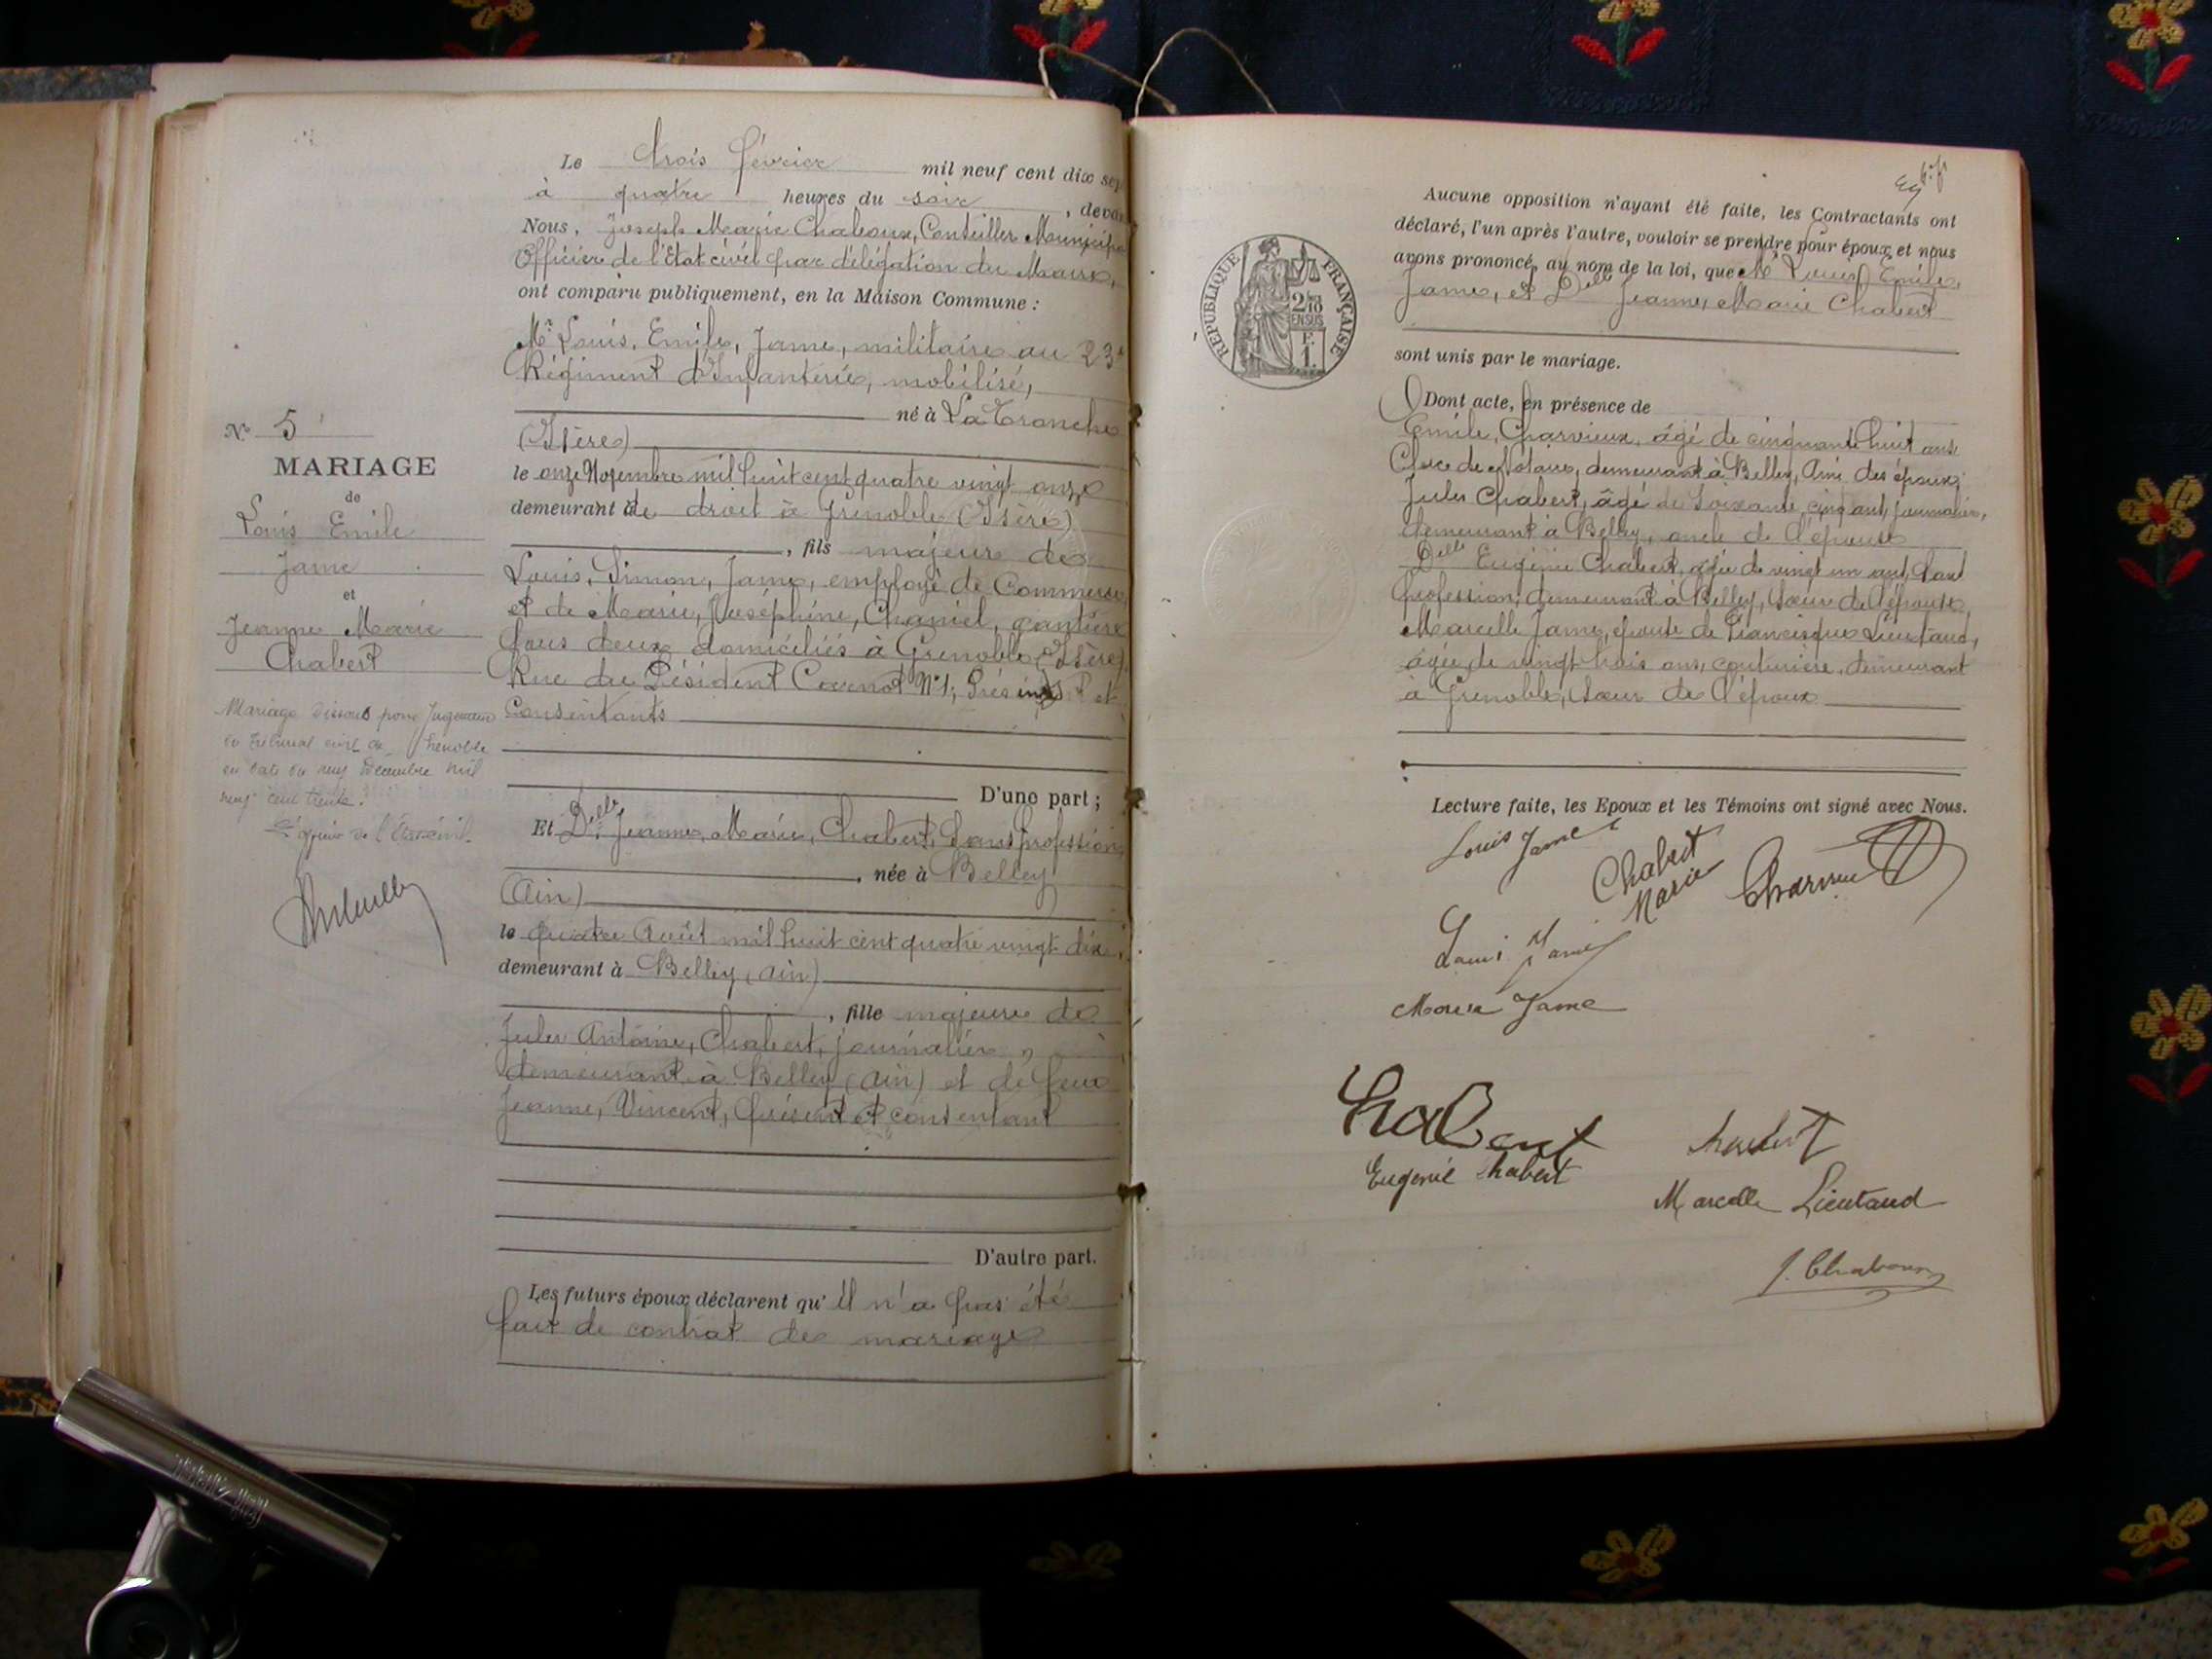 Le trois février mil neuf cent dix sep
à quatre heures du soir, deva
Nous, Joseph Marie Chaboux, Conseiller Municipa
Officier de l'Etat civil par délégation du Maire,
ont comparu publiquement, en la Maison Commune :
Mr Louis, Emile, Jame, militaire au 23e
Régiment d'Infanterie, mobilisé,
né à La Tronche
(Isère)
le onze Novembre mil huit cent quatre vingt onze
demeurant de droit à Grenoble (Isère)
, fils majeur de
Louis, Simon, Jame, employé de Commerce,
et de Marie, Joséphine, Chaniel, gantière
tous deux domiciliés à Grenoble (Isère)
Rue du Président Carnot N°1, Présents et
Consentants
D'une part ;
Et Delle Jeanne, Marie, Chabert, Sans profession
, née à Belley
(Ain)
le quatre Août mil huit cent quatre vingt dix,
demeurant à Belley (Ain)
, fille majeure de
Jules Antoine, Chabert, journalier,
demeurant à Belley (Ain) et de feue
Jeanne, Vincent, présent et consentant
D'autre part.
Les futurs époux déclarent qu'il n'a pas été
fait de contrat de mariage
N° 5
MARIAGE
de
Louis Emile
Jame
et
Jeanne Marie
Chabert
Mariage dissous par Jugement
du Tribunal civil de Grenoble
en date du neuf Décembre mil
neuf cent trente.
L'officier de l'État civil.
Aucune opposition n'ayant été faite, les Contractants ont
déclaré, l'un après l'autre, vouloir se prendre pour époux, et nous
avons prononcé, au nom de la loi, que Mr Louis, Emile,
Jame, et Delle Jeanne, Marie Chabert
sont unis par le mariage.
REPUBLIQUE FRANÇAISE
2/10
EN SUS
F.
1.
Dont acte, en présence de
Emile, Charvieux, âgé de cinquante huit ans
Clerc de Notaire, demeurant à Belley, Ami des époux;
Jules Chabert, âgé de Soixante cinq ans, journalier,
demeurant à Belley, oncle de l'épouse
Delle Eugénie Chabert, âgée de vingt un ans, Sans
profession, demeurant à Belley, Sœur de l'épouse,
Marcelle Jame, épouse de Francisque Lieutaud,
âgée de vingt trois ans, couturière, demeurant
à Grenoble, Sœur de l'époux
Lecture faite, les Epoux et les Témoins ont signé avec Nous.
Louis Jame
Chabert
Marie
Charvieux
Louis Jame
Marie Jame
Chabert
Chabert
Eugénie Chabert
Marcelle Lieutaud
J. Chaboux